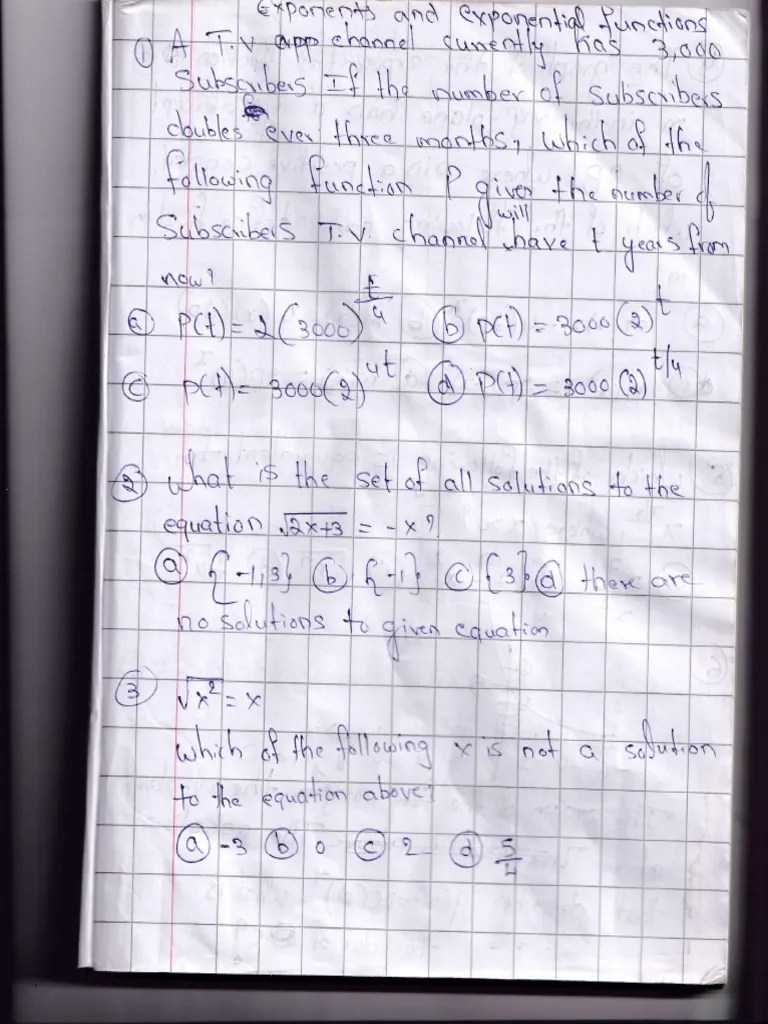 Exponents and exponential functions
① A T.V app channel currently has 3,000
Subscribers If the number of subscribers
doubles ever three months, which of the
following function P given the number of
Subscribers T.V. channel will have t years from
now?
ⓐ P(t) = 2(3000)^(t/4) ⓑ P(t) = 3000(2)^t
ⓒ P(t) = 3000(2)^4t ⓓ P(t) = 3000(2)^t/4
② what is the set of all solutions to the
equation √2x+3 = -x?
ⓐ {-1,3} ⓑ {-1} ⓒ {3} ⓓ there are
no solutions to given equation
③ √x² = x
which of the following x is not a solution
to the equation above?
ⓐ -3 ⓑ 0 ⓒ 2 ⓓ 5/4